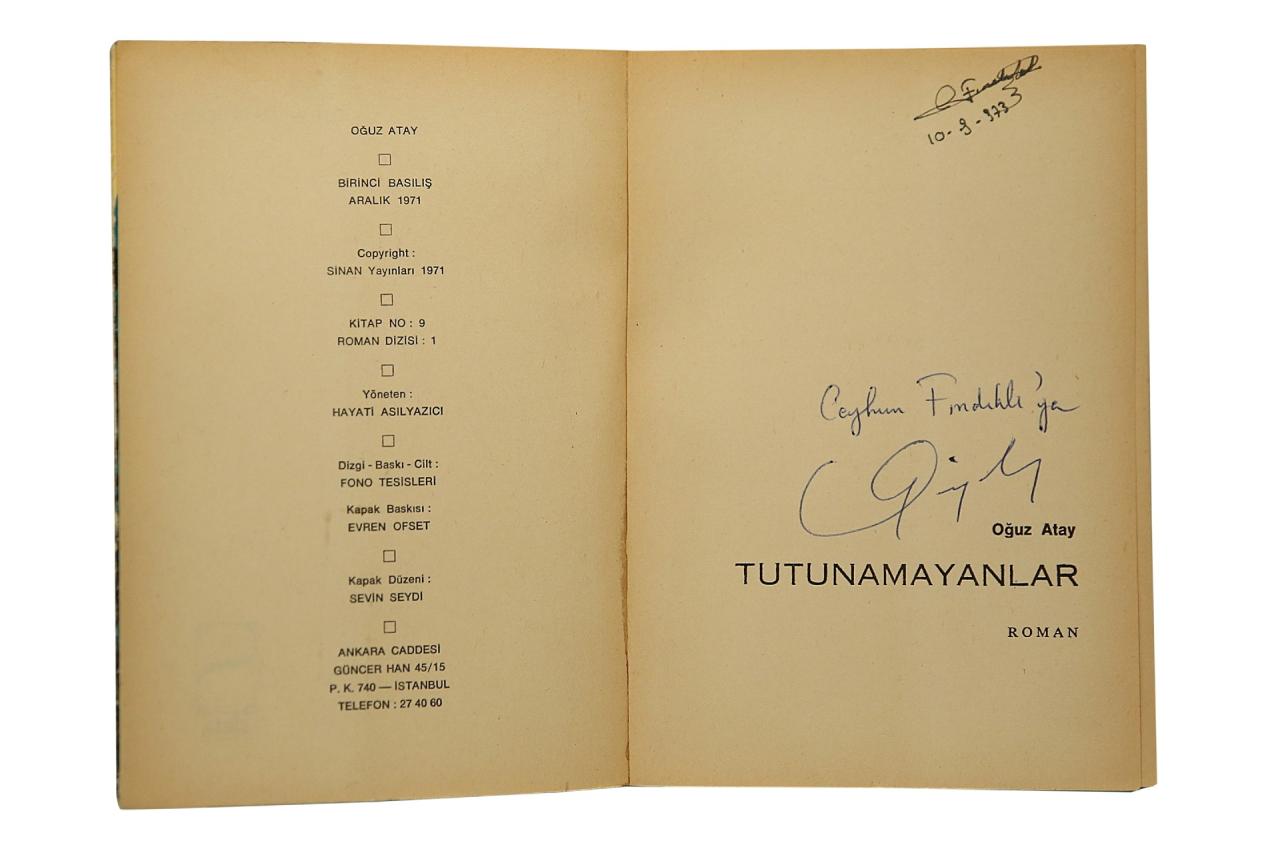 OĞUZ ATAY
BİRİNCİ BASILIŞ
ARALIK 1971
Copyright :
SİNAN Yayınları 1971
KİTAP NO : 9
ROMAN DİZİSİ : 1
Yöneten :
HAYATİ ASILYAZICI
Dizgi - Baskı - Cilt :
FONO TESİSLERİ
Kapak Baskısı :
EVREN OFSET
Kapak Düzeni :
SEVİN SEYDİ
ANKARA CADDESİ
GÜNCER HAN 45/15
P. K. 740 — İSTANBUL
TELEFON : 27 40 60
10-9-973
Ceyhun Fındıklı'ya
Oğuz Atay
TUTUNAMAYANLAR
ROMAN